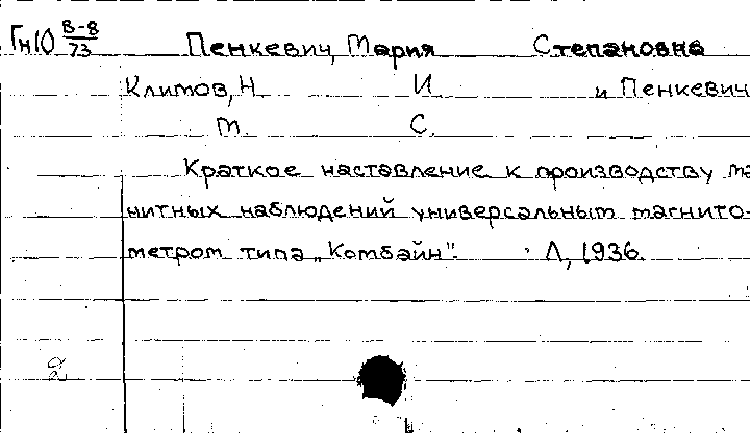 Гн10 В-8/73 Пенкевич, Мария Степановна
Климов, Н. И. и Пенкевич
М. С.
Краткое наставление к производству маг
нитных наблюдений универсальным магнито-
метром типа „Комбайн". Л., 1936.